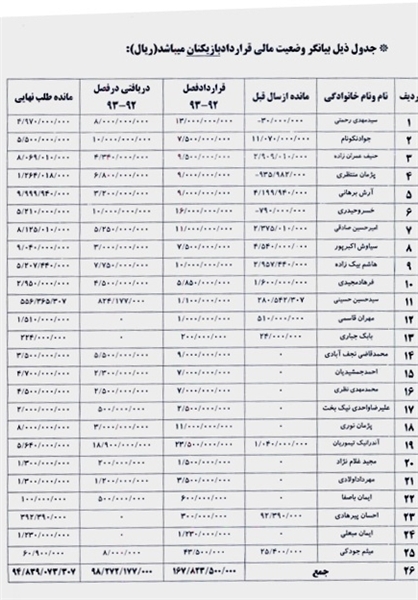 ※ جدول ذیل بیانگر وضعیت مالی قراردادبازیکنان میباشد(ریال):
ردیف نام ونام خانوادگی مانده ازسال قبل قراردادفصل ۹۲-۹۳ دریافتی درفصل ۹۲-۹۳ مانده طلب نهایی
۱ سیدمهدی رحمتی -۳۰/۰۰۰/۰۰۰ ۱۳/۰۰۰/۰۰۰/۰۰۰ ۸/۰۰۰/۰۰۰/۰۰۰ ۴/۹۷۰/۰۰۰/۰۰۰
۲ جوادنکونام ۱۱/۰۷۰/۰۰۰/۰۰۰ ۷/۵۰۰/۰۰۰/۰۰۰ ۱۰/۰۰۰/۰۰۰/۰۰۰ ۵/۵۰۰/۰۰۰/۰۰۰
۳ حنیف عمران زاده ۲/۹۰۹/۰۱۰/۰۰۰ ۹/۵۰۰/۰۰۰/۰۰۰ ۴/۳۴۰/۰۰۰/۰۰۰ ۸/۰۶۹/۰۱۰/۰۰۰
۴ پژمان منتظری -۹۳۵/۹۸۲/۰۰۰ ۹/۰۰۰/۰۰۰/۰۰۰ ۶/۸۰۰/۰۰۰/۰۰۰ ۱/۲۶۴/۰۱۸/۰۰۰
۵ آرش برهانی ۴/۱۹۹/۹۴۰/۰۰۰ ۹/۰۰۰/۰۰۰/۰۰۰ ۳/۲۰۰/۰۰۰/۰۰۰ ۹/۹۹۹/۹۴۰/۰۰۰
۶ خسروحیدری -۷۹۰/۰۰۰/۰۰۰ ۱۶/۰۰۰/۰۰۰/۰۰۰ ۱۰/۰۰۰/۰۰۰/۰۰۰ ۵/۲۱۰/۰۰۰/۰۰۰
۷ امیرحسین صادقی ۲/۳۷۵/۰۱۰/۰۰۰ ۱۱/۰۰۰/۰۰۰/۰۰۰ ۵/۲۵۰/۰۰۰/۰۰۰ ۸/۱۲۵/۰۱۰/۰۰۰
۸ سیاوش اکبرپور ۴/۵۴۰/۰۰۰/۰۰۰ ۷/۵۰۰/۰۰۰/۰۰۰ ۳/۰۰۰/۰۰۰/۰۰۰ ۹/۰۴۰/۰۰۰/۰۰۰
۹ هاشم بیک زاده ۲/۹۵۷/۴۴۰/۰۰۰ ۱۰/۰۰۰/۰۰۰/۰۰۰ ۷/۷۵۰/۰۰۰/۰۰۰ ۵/۲۰۷/۴۴۰/۰۰۰
۱۰ فرهادمجیدی ۱/۶۰۰/۰۰۰/۰۰۰ ۵/۸۵۰/۰۰۰/۰۰۰ ۴/۵۰۰/۰۰۰/۰۰۰ ۲/۹۵۰/۰۰۰/۰۰۰
۱۱ سیدحسین حسینی ۲۸۰/۵۴۲/۳۰۷ ۱/۱۰۰/۰۰۰/۰۰۰ ۸۲۴/۱۷۷/۰۰۰ ۵۵۶/۳۶۵/۳۰۷
۱۲ مهران قاسمی ۵۱۰/۰۰۰/۰۰۰ ۱/۰۰۰/۰۰۰/۰۰۰ ۰ ۱/۵۱۰/۰۰۰/۰۰۰
۱۳ بابک جباری ۲۴/۰۰۰/۰۰۰ ۲۰۰/۰۰۰/۰۰۰ ۰ ۲۲۴/۰۰۰/۰۰۰
۱۴ محمدقاضی نجف آبادی ۰ ۹/۰۰۰/۰۰۰/۰۰۰ ۵/۵۰۰/۰۰۰/۰۰۰ ۳/۵۰۰/۰۰۰/۰۰۰
۱۵ احمدجمشیدیان ۰ ۷/۰۰۰/۰۰۰/۰۰۰ ۲/۳۰۰/۰۰۰/۰۰۰ ۴/۷۰۰/۰۰۰/۰۰۰
۱۶ محمدمهدی نظری ۰ ۷/۰۰۰/۰۰۰/۰۰۰ ۲/۵۰۰/۰۰۰/۰۰۰ ۴/۵۰۰/۰۰۰/۰۰۰
۱۷ علیرضاواحدی نیک بخت ۰ ۲/۵۰۰/۰۰۰/۰۰۰ ۵۰۰/۰۰۰/۰۰۰ ۲/۰۰۰/۰۰۰/۰۰۰
۱۸ پژمان نوری ۰ ۱۱/۰۰۰/۰۰۰/۰۰۰ ۳/۰۰۰/۰۰۰/۰۰۰ ۸/۰۰۰/۰۰۰/۰۰۰
۱۹ آندرانیک تیموریان ۱/۰۴۰/۰۰۰/۰۰۰ ۲۳/۵۰۰/۰۰۰/۰۰۰ ۱۸/۹۰۰/۰۰۰/۰۰۰ ۵/۶۴۰/۰۰۰/۰۰۰
۲۰ مجید غلام نژاد ۰ ۱/۵۰۰/۰۰۰/۰۰۰ ۲۰۰/۰۰۰/۰۰۰ ۱/۳۰۰/۰۰۰/۰۰۰
۲۱ مهرداداولادی ۰ ۱/۲۰۰/۰۰۰/۰۰۰ ۱/۳۰۰/۰۰۰/۰۰۰
۲۲ ایمان باصفا ۰ ۶۰۰/۰۰۰/۰۰۰ ۵۰۰/۰۰۰/۰۰۰ ۱۰۰/۰۰۰/۰۰۰
۲۳ احسان پیرهادی ۹۲/۳۹۰/۰۰۰ ۳۰۰/۰۰۰/۰۰۰ ۰ ۳۹۲/۳۹۰/۰۰۰
۲۴ ایمان مبعلی ۰ ۱/۲۳۰/۰۰۰/۰۰۰ ۰ ۱/۲۳۰/۰۰۰/۰۰۰
۲۵ میثم جودکی ۲۵/۴۰۰/۰۰۰ ۴۳/۵۰۰/۰۰۰ ۸/۰۰۰/۰۰۰ ۶۰/۹۰۰/۰۰۰
۲۶ جمع ۱۶۷/۸۲۳/۵۰۰/۰۰۰ ۹۸/۲۷۲/۱۷۷/۰۰۰ ۹۴/۸۳۹/۰۷۳/۳۰۷